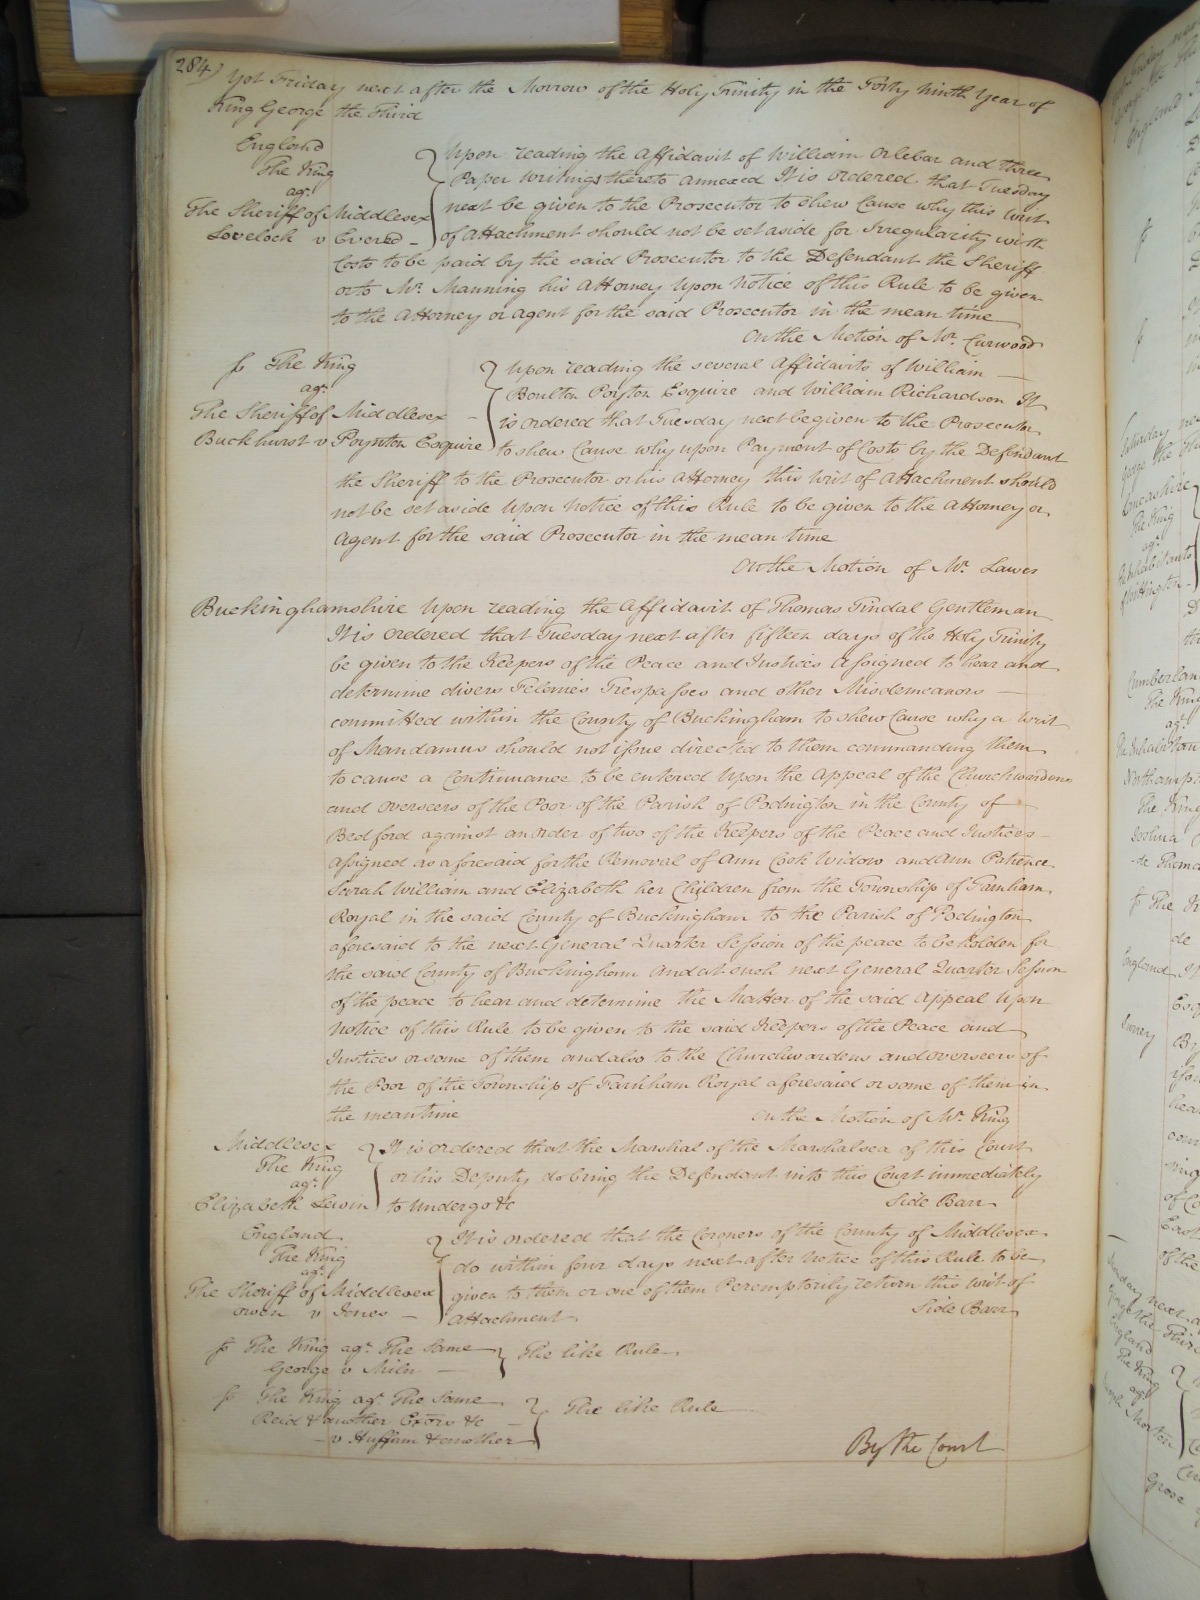 284
Yet Friday next after the Morrow of the Holy Trinity in the Forty Ninth Year of
King George the Third
England
The King
agt
The Sheriff of Middlesex
Lovelock v Evered
Upon reading the Affidavit of William Orlebar and three
Paper Writings thereto annexed It is ordered that Tuesday
next be given to the Prosecutor to shew Cause why this Writ
of Attachment should not be set aside for Irregularity with
Costs to be paid by the said Prosecutor to the Defendant the Sheriff
or to Mr. Manning his Attorney Upon Notice of this Rule to be given
to the Attorney or Agent for the said Prosecutor in the mean time
On the Motion of Mr. Curwood
The King
agt
The Sheriff of Middlesex
Buckhurst v Poynton Esquire
Upon reading the several Affidavits of William
Boulton Poynton Esquire and William Richardson It
is ordered that Tuesday next be given to the Prosecutor
to shew Cause why upon Payment of Costs by the Defendant
the Sheriff to the Prosecutor or his Attorney this Writ of Attachment should
not be set aside Upon Notice of this Rule to be given to the Attorney or
Agent for the said Prosecutor in the mean time
On the Motion of Mr. Lawes
Buckinghamshire Upon reading the Affidavit of Thomas Tindal Gentleman
It is ordered that Tuesday next after fifteen days of the Holy Trinity
be given to the Keepers of the Peace and Justices Assigned to hear and
determine divers Felonies Trespasses and other Misdemeanors
committed within the County of Buckingham to shew Cause why a Writ
of Mandamus should not issue directed to them commanding them
to cause a Continuance to be entered Upon the Appeal of the Churchwardens
and Overseers of the Poor of the Parish of Podington in the County of
Bedford against an order of two of the Keepers of the Peace and Justices
Assigned as aforesaid for the Removal of Ann Cook Widow and Ann Patience
Sarah William and Elizabeth her Children from the Township of Farnham
Royal in the said County of Buckingham to the Parish of Podington
aforesaid to the next General Quarter Session of the peace to be holden for
the said County of Buckingham And at such next General Quarter Session
of the peace to hear and determine the Matter of the said Appeal Upon
Notice of this Rule to be given to the said Keepers of the Peace and
Justices or some of them and also to the Churchwardens and overseers of
the Poor of the Township of Farnham Royal aforesaid or some of them in
the mean time
On the Motion of Mr. King
Middlesex
The King
agt
Elizabeth Lewin
It is ordered that the Marshal of the Marshalsea of this Court
or his Deputy do bring the Defendant into this Court immediately
to undergo &c
Side Barr
England
The King
agt
The Sheriff of Middlesex
Owen v Jones
It is ordered that the Coroners of the County of Middlesex
do within four days next after Notice of this Rule to be
given to them or one of them Peremptorily return this Writ of
Attachment
Side Barr
The King agt The Same
George v Miln
The like Rule
The King agt The Same
Reid & another Exors &c
v Huffam & another
The like Rule
By the Court